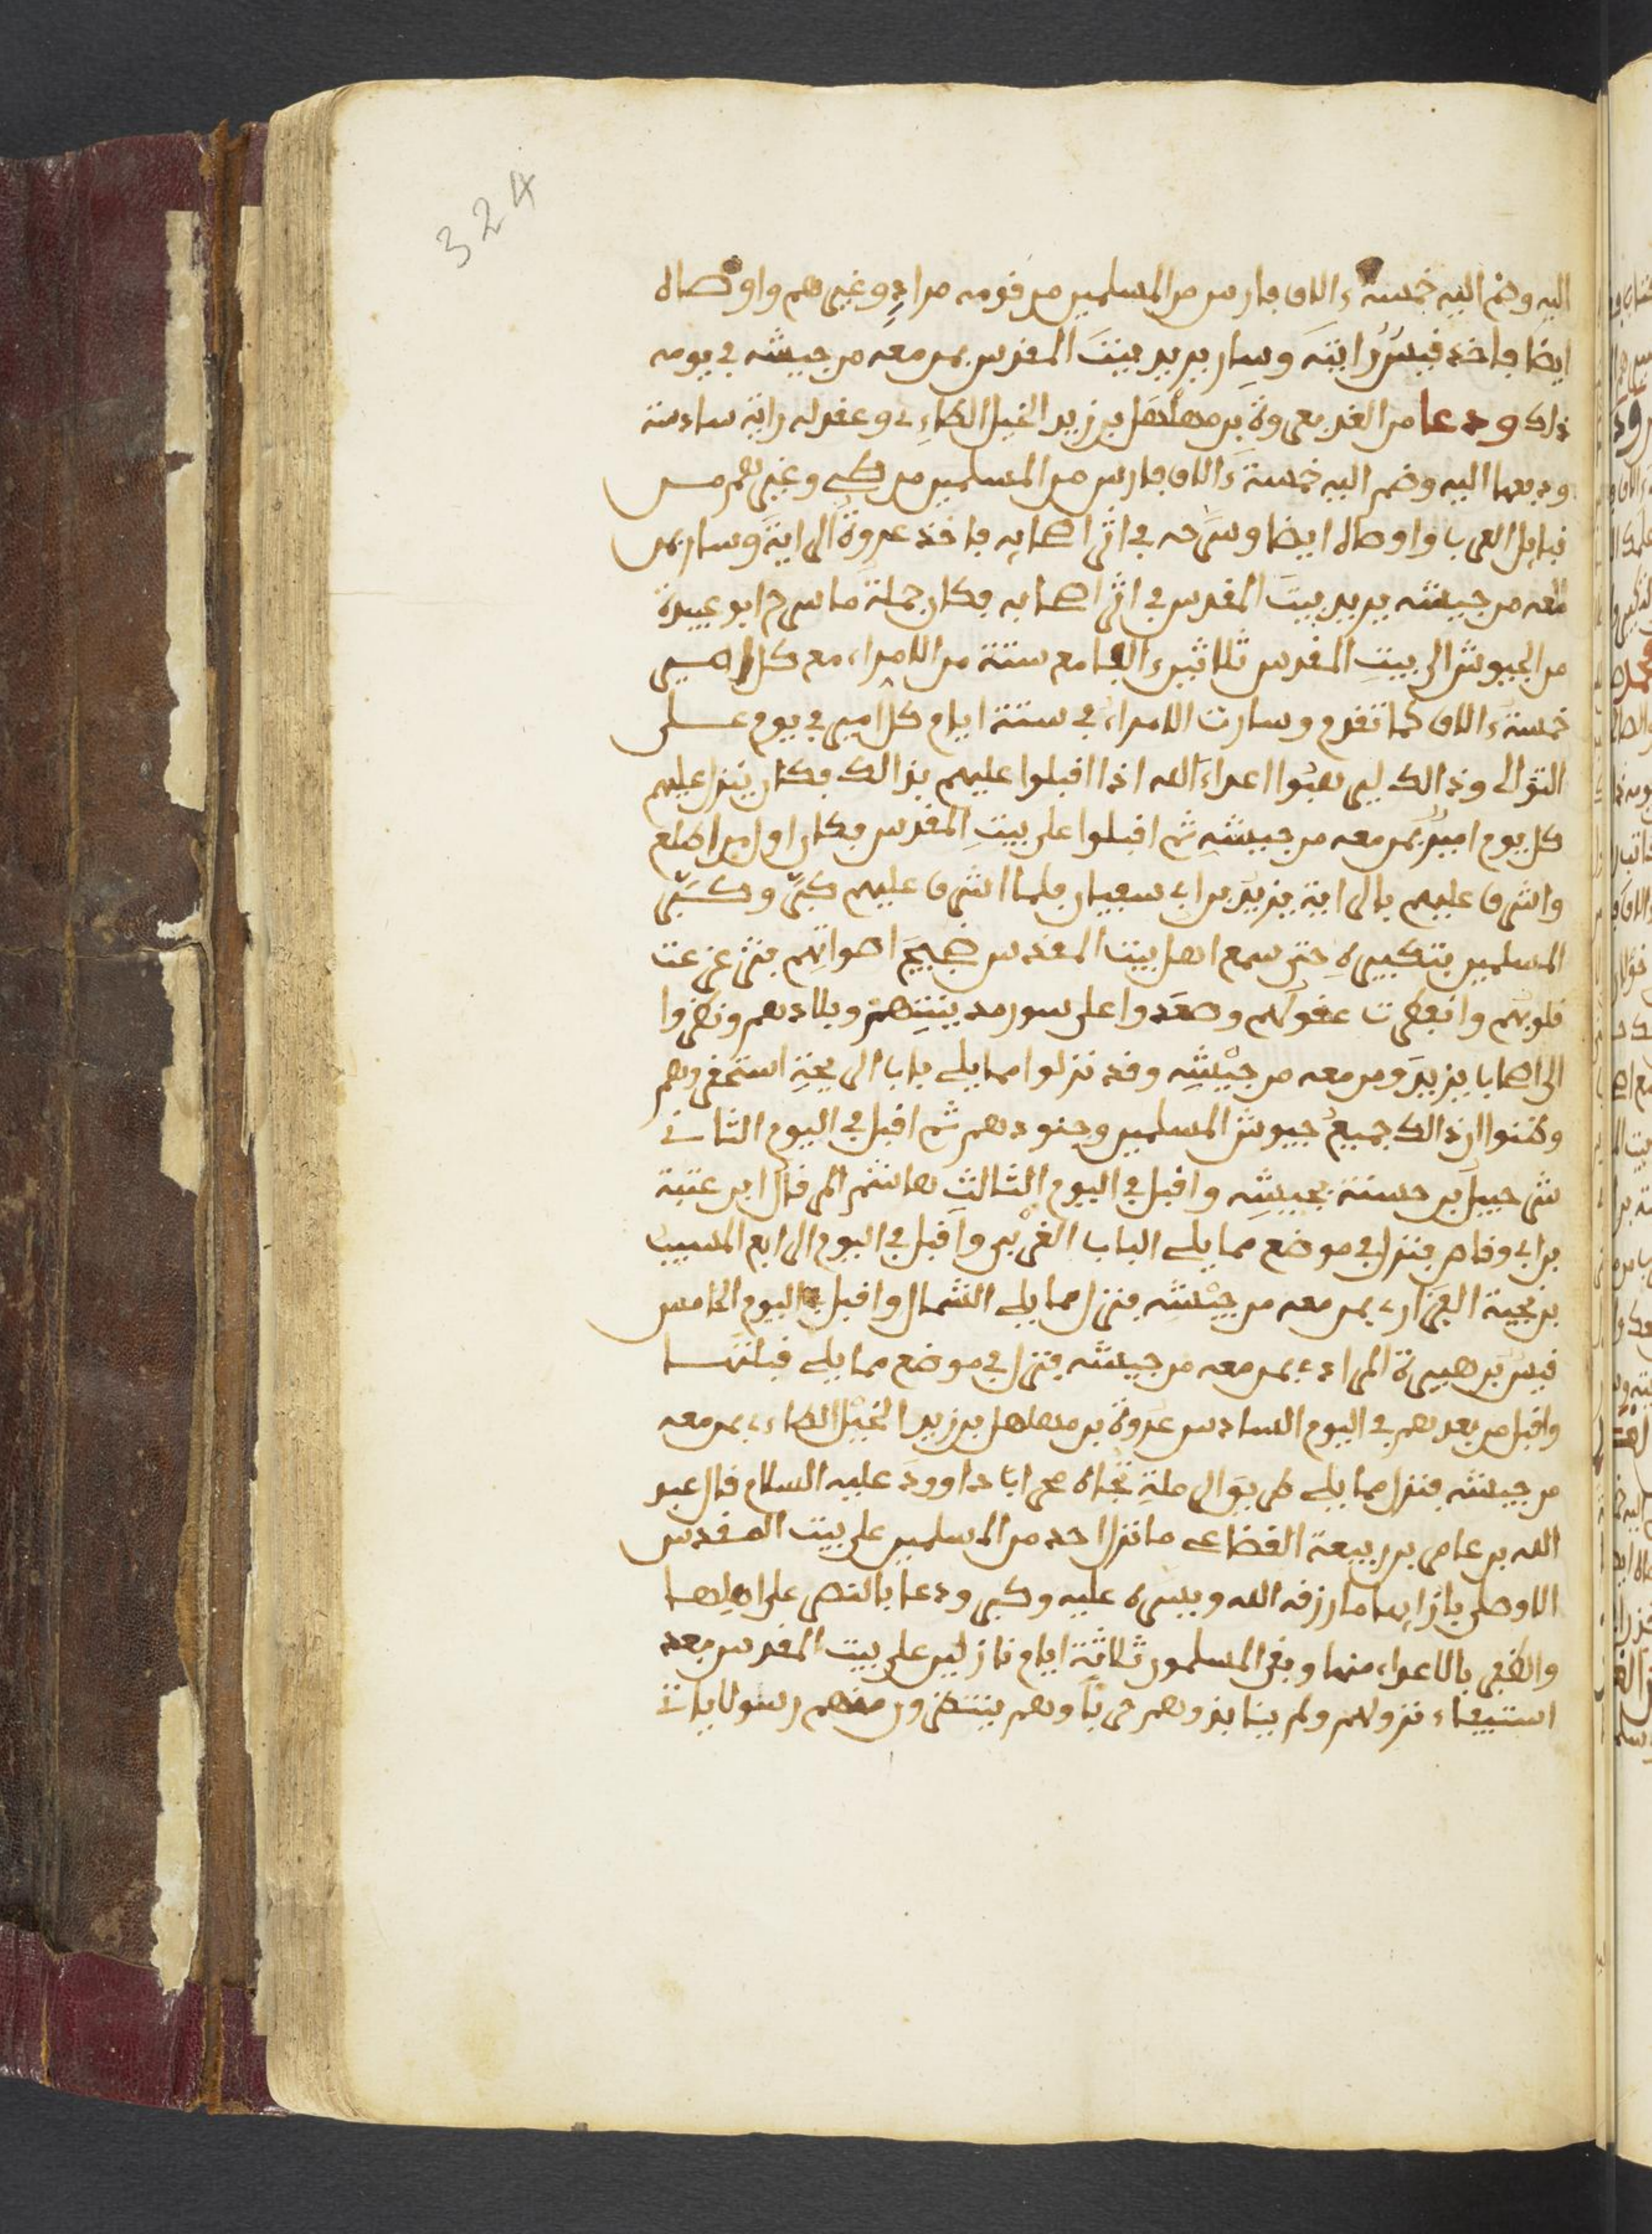 324
اليه وضم اليه خمسة ءالاف فارس من المسلمين من قومه مراد وغيرهم واوصاه
ايضا فاخذ قيس رايته وسار يريد بيت المقدس بمن معه من جيشه في يومه
ذلك ودعا من الغد بعروة بن مهلهل بن زيد الخيل الطاءي وعقد له راية سادسة
ودفعها اليه وضم اليه خمسة ءالاف فارس من المسلمين من طي وغيرهم من
قبايل العرب واوصاه ايضا وسرحه في اثر اصحابه فاخذ عروة الراية وسار بمن
معه من جيشه يريد بيت المقدس في اثر اصحابه فكان جملة ما سرح ابو عبيدة
من الجيوش الى بيت المقدس ثلاثين الفا مع ستة من الامراء مع كل امير
خمسة ءالاف كما تقدم وسارت الامراء في ستة ايام كل امير في يوم على
التوالي وذالك ليرهبوا اعداء الله اذا اقبلوا عليهم بذالك فكان ينزل عليهم
كل يوم امير بمن معه من جيشه ثم اقبلوا على بيت المقدس فكان اول من اطلع
واشرف عليهم بالراية يزيد بن ابي سفيان فلما اشرف عليهم كبر وكبر
المسلمين بتكبيره حتى سمع اهل بيت المقدس ضجيج اصواتهم فتزعزعت
قلوبهم وانفطرت عقولهم وصعدوا على سور مدينتهم وبلادهم ونظروا
الى اصحاب يزيد ومن معه من جيشه وقد نزلوا مما يلي باب الريحة استحقروهم
وظنوا ان ذالك جميع جيوش المسلمين وجنودهم ثم اقبل في اليوم الثاني
شرحبيل بن حسنة بجيشه واقبل في اليوم الثالث هاشم المرقال ابن عتبة
بن ابي وقاص فنزل في موضع مما يلي الباب الغربي واقبل في اليوم الرابع المسيب
بن نجية الفزاري بمن معه من جيشه فنزل مما يلي الشمال واقبل في اليوم الخامس
قيس بن هبيرة المرادي بمن معه من جيشه فنزل في موضع مما يلي قبلتها
واقبل من بعدهم في اليوم السادس عروة بن مهلهل بن زيد الخيل الطاءي بمن معه
من جيشه فنزل مما يلي طريق الرملة تجاه محراب داوود عليه السلام قال عبد
الله بن عامر بن ربيعة القضاعي ما نزل احد من المسلمين على بيت المقدس
الا وصلى بازايها ما رزقه الله ويسره عليه وكبر ودعا بالنصر على اهلها
والظفر بالاعداء منها وبقي المسلمون ثلاثة ايام نازلين على بيت المقدس بعد
استيفاء نزولهم ولم ينابذوهم حربا وهم ينتظرون منهم رسولا ياتي